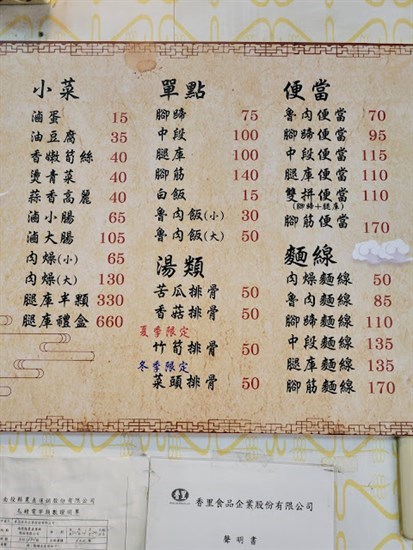 小菜
滷蛋 15
油豆腐 35
香嫩荀絲 40
燙青菜 40
蒜香高麗 40
滷小腸 65
滷大腸 105
肉燥(小) 65
肉燥(大) 130
腿庫半顆 330
腿庫禮盒 660
單點
腳蹄 75
中段 100
腿庫 100
腳筋 140
白飯 15
魯肉飯(小) 30
魯肉飯(大) 50
湯類
苦瓜排骨 50
香菇排骨 50
夏季限定
竹荀排骨 50
冬季限定
菜頭排骨 50
便當
魯肉便當 70
腳蹄便當 95
中段便當 115
腿庫便當 110
雙拼便當 110
(腳蹄+腿庫)
腳筋便當 170
麵線
肉燥麵線 50
魯肉麵線 85
腳蹄麵線 110
中段麵線 135
腿庫麵線 135
腳筋麵線 170
香里食品企業股份有限公司
聲明書